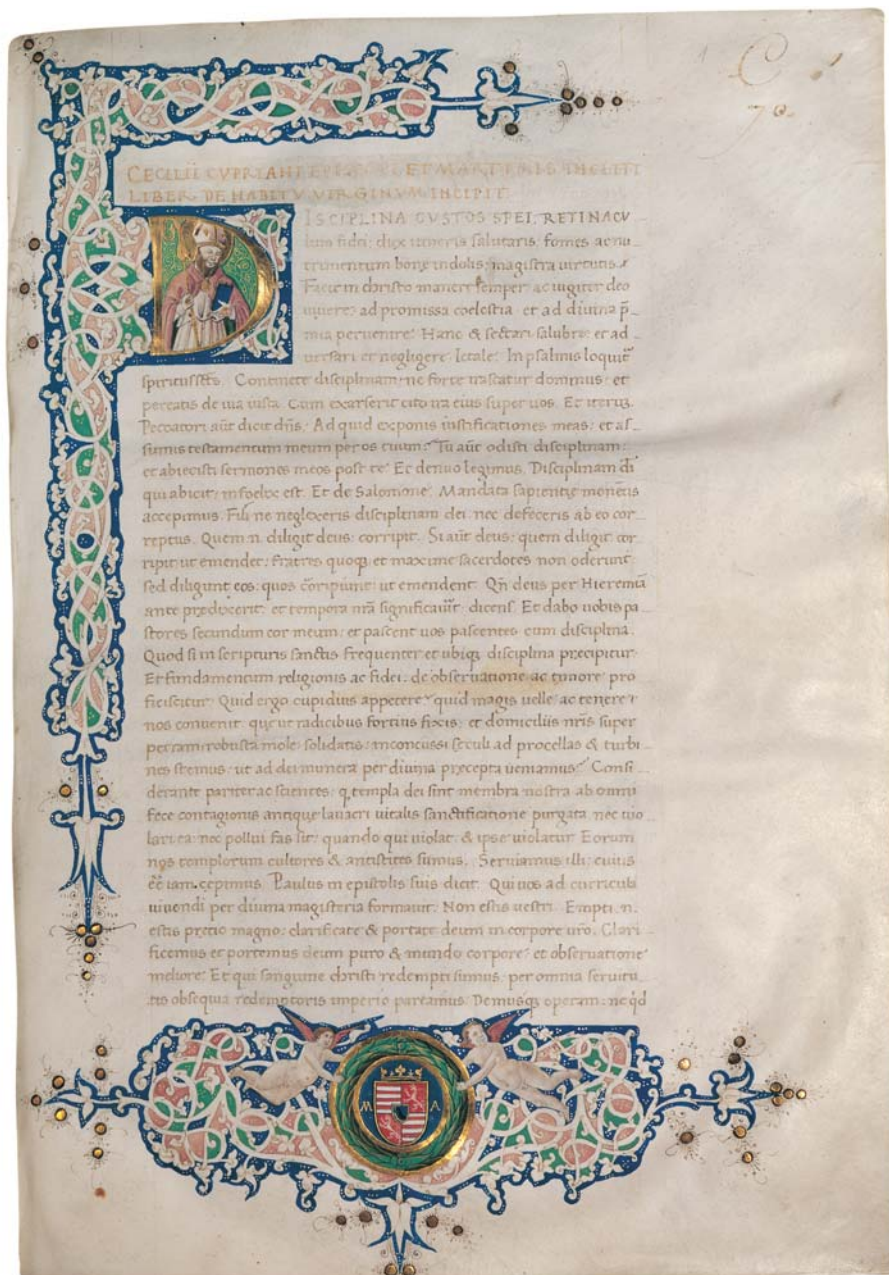 C
70.
CECILII CYPRIANI EPISCOPI ET MARTYRIS INCLITI
LIBER DE HABITV VIRGINVM INCIPIT
DISCIPLINA CVSTOS SPEI, RETINACV
lum fidei: dux itineris salutaris, fomes ac nu
trimentum bonę indolis: magistra virtutis
Facit in christo manere semper ac iugiter deo
vivere: ad promissa coelestia et ad divina p̄
mia pervenire. Hanc & sectari salubre: et ad
versari et negligere letale. In psalmis loquit̄
spiritussc̄tus. Continete disciplinam: ne forte irascatur dominus: et
pereatis de via iusta. Cum exarserit cito ira eius super vos. Et iterū.
Peccatori aūt dicit dn̄s. Ad quid exponis iustificationes meas: et as
sumis testamentum meum per os tuum? Tu aūt odisti disciplinam:
et abiecisti sermones meos post te. Et denuo legimus. Disciplinam
qui abicit: infoelix est. Et de Salomone. Mandata sapientię monentis
accepimus. Fili ne neglexeris disciplinam dei nec defeceris ab eo cor
reptus. Quem n. diligit deus: corripit. Si aūt deus: quem diligit cor
ripit ut emendet: fratres quoq; et maxime sacerdotes non oderunt
sed diligunt eos: quos corripiunt: ut emendent. Qn̄ deus per Hieremiā
ante predixerit: et tempora nr̄a significaūit dicens. Et dabo vobis pa
stores secundum cor meum: et pascent vos pascentes cum disciplina.
Quod si in scripturis sanctis frequenter et ubiq; disciplina precipitur
Et fundamentum religionis ac fidei: de observatione ac timore pro
ficiscitur. Quid ergo cupidius appetere? quid magis velle ac tenere?
nos convenit: que ut radicibus fortius fixis: et domiciliis nr̄is super
petram: robusta mole solidatis: inconcussi seculi ad procellas & turbi
nes stemus: ut ad dei munera per divina precepta veniamus? Consi
derante pariter ac scientes: q̄ templa dei sint membra nostra ab omni
fece contagionis antique lavacri vitalis sanctificatione purgata nec vio
lari ea: nec pollui fas sit: quando qui violat: & ipse violatur Eorum
nos templorum cultores & antistites sumus. Serviamus illi: cuius
eē iam cępimus. Paulus in epistolis suis dicit. Qui nos ad curricula
vivendi per divina magisteria formavit. Non estis vestri. Empti n.
estis precio magno: clarificate & portate deum in corpore vr̄o. Clari
ficemus et portemus deum puro & mundo corpore: et observatione
meliore. Et qui sanguine christi redempti sumus: per omnia servitu
tis obsequia redemptoris imperio pareamus. Demusq; operam: ne qd
M A